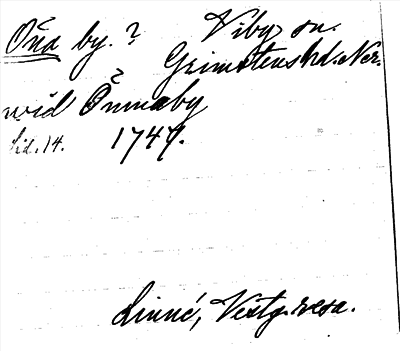 Öna by. ? Viby sn.
Grimstens hd. Ner.
? 
wid Önnaby
sid. 14. 1747.
Linné, Västg. resa.